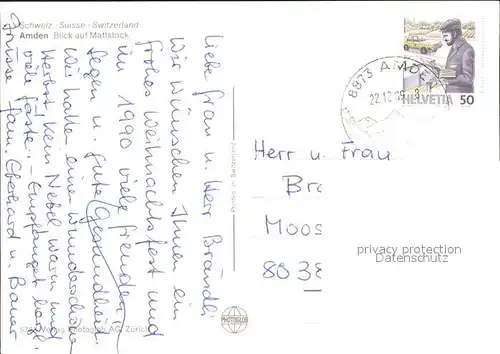 Schweiz · Suisse · Switzerland
Amden Blick auf Mattstock
Liebe Frau u. Herr Brändli
Wir wünschen Ihnen ein
frohes Weihnachtsfest und
im 1990 viele Freuden,
Segen u. gute Gesundheit.
Wir hatten einen wunderschönen
Herbst, kein Nebel warm und
viele Gäste. – Empfanget herzl.
Grüsse Fam. Eberhard u. Bauer
Photoglob AG, Zürich
Printed in Switzerland
PHOTOGLOB
8873 AMDEN
22.12.89-8
HELVETIA 50
Herr u. Frau
Brä
Moos
8038
privacy protection
Datenschutz